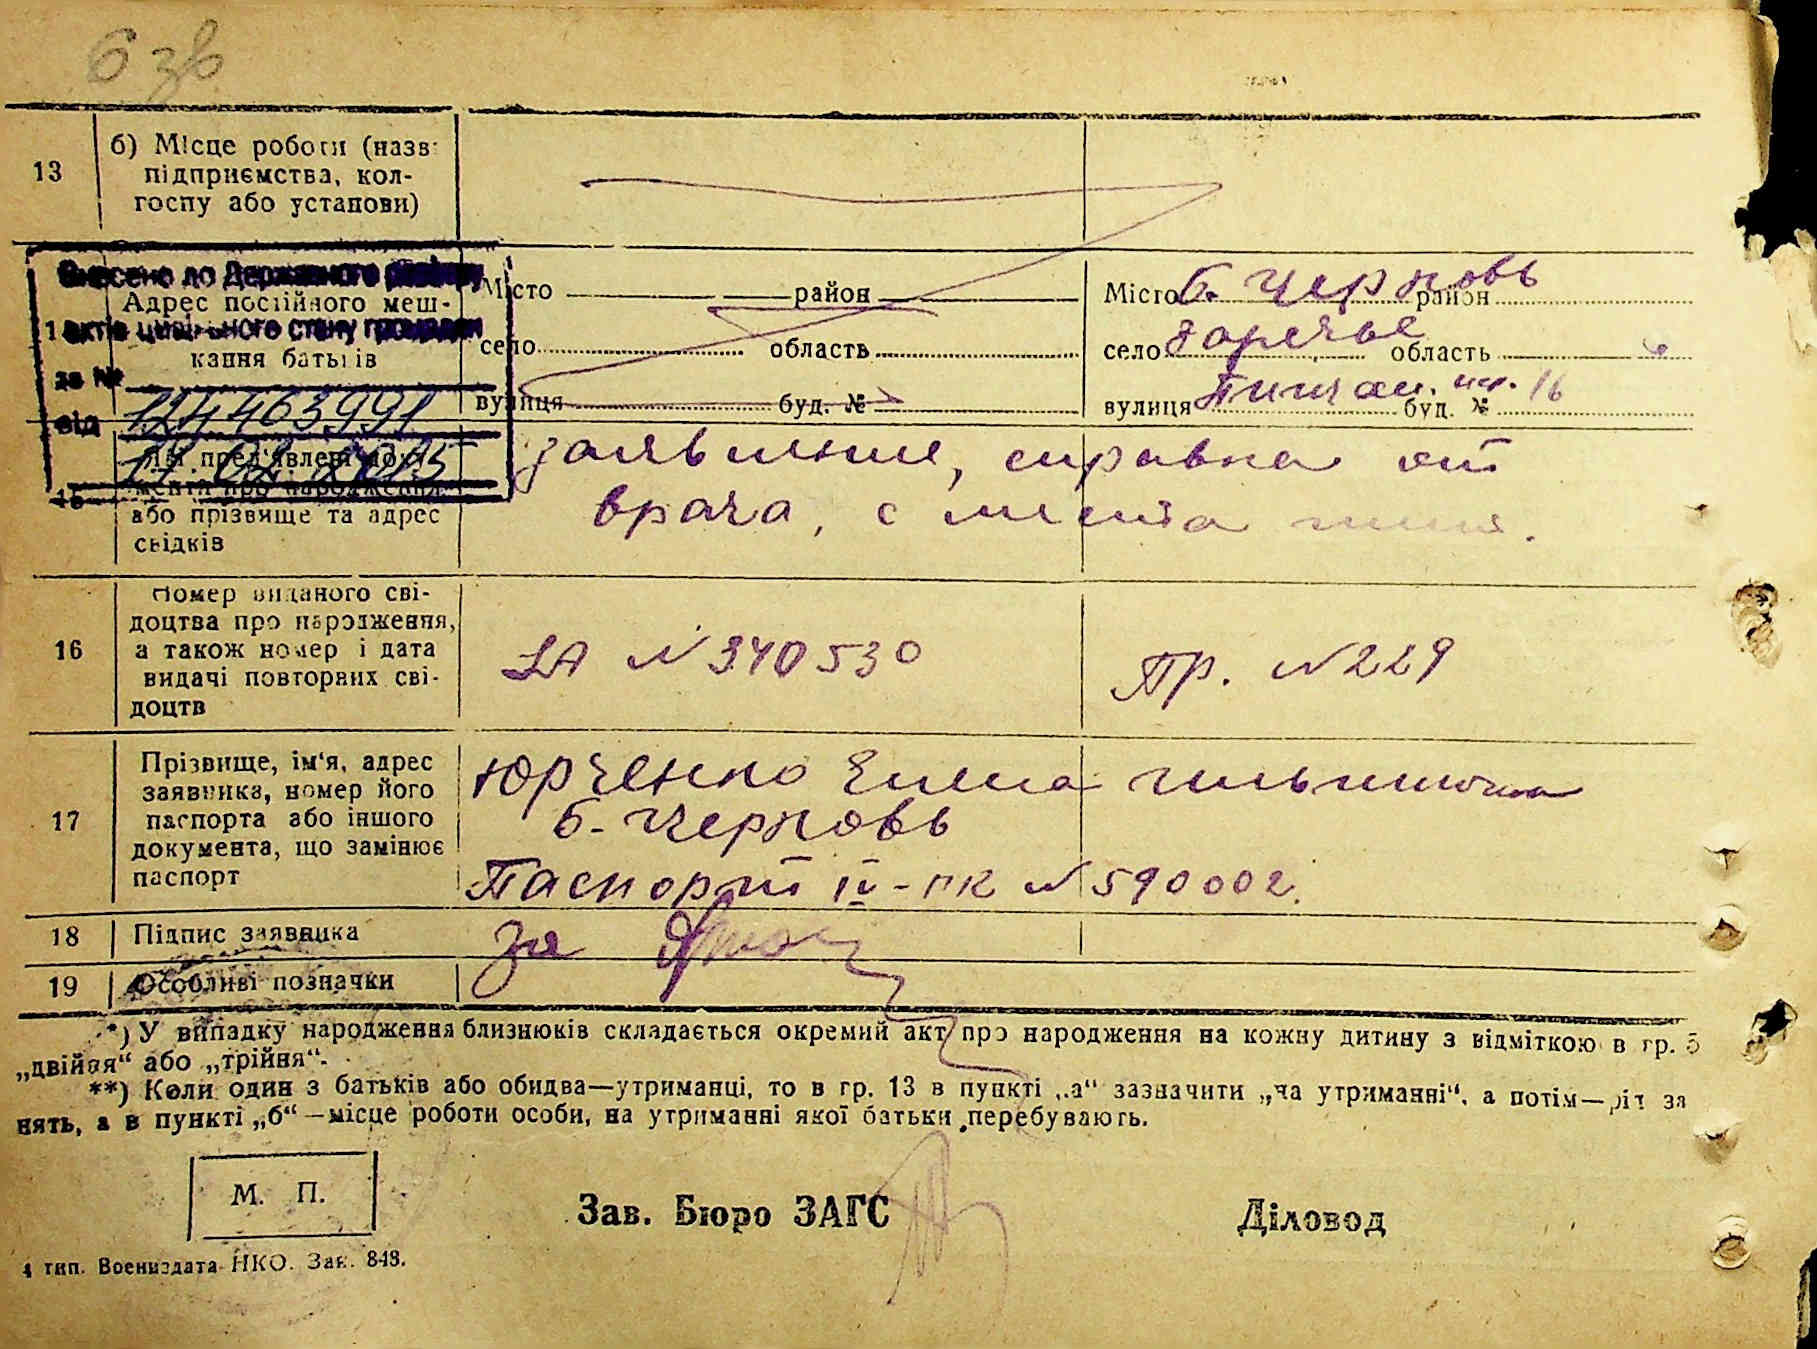 6 зв
13
б) Місце роботи (назв
підприємства, кол-
госпу або установи)
Внесено до Державного реєстру
актів цивільного стану громадян
за № 124463991
від
Адрес постійного меш-
кання батьків
Місто район
село область
вулиця буд. №
Місто Б. Черповь район
село Заречье область
вулиця буд. № 16
15
або прізвище та адрес
свідків
заявление, справка от
врача, с места
16
Номер виданого сві-
доцтва про народження,
а також номер і дата
видачі повторних сві-
доцтв
ЯА № 340530
Пр. № 229
17
Прізвище, ім'я, адрес
заявника, номер його
паспорта або іншого
документа, що замінює
паспорт
Юрченко Елена
Б. Черповь
Паспорт IV-ПК № 590002.
18
Підпис заявника
За
19
Особливі позначки
*) У випадку народження близнюків складається окремий акт про народження на кожну дитину з відміткою в гр. 5
„двійня“ або „трійня“.
**) Коли один з батьків або обидва—утриманці, то в гр. 13 в пункті „а“ зазначити „на утриманні“, а потім—рід за
нять, а в пункті „б“—місце роботи особи, на утриманні якої батьки перебувають.
М. П.
Зав. Бюро ЗАГС
Діловод
4 тип. Воениздата НКО. Зак. 848.